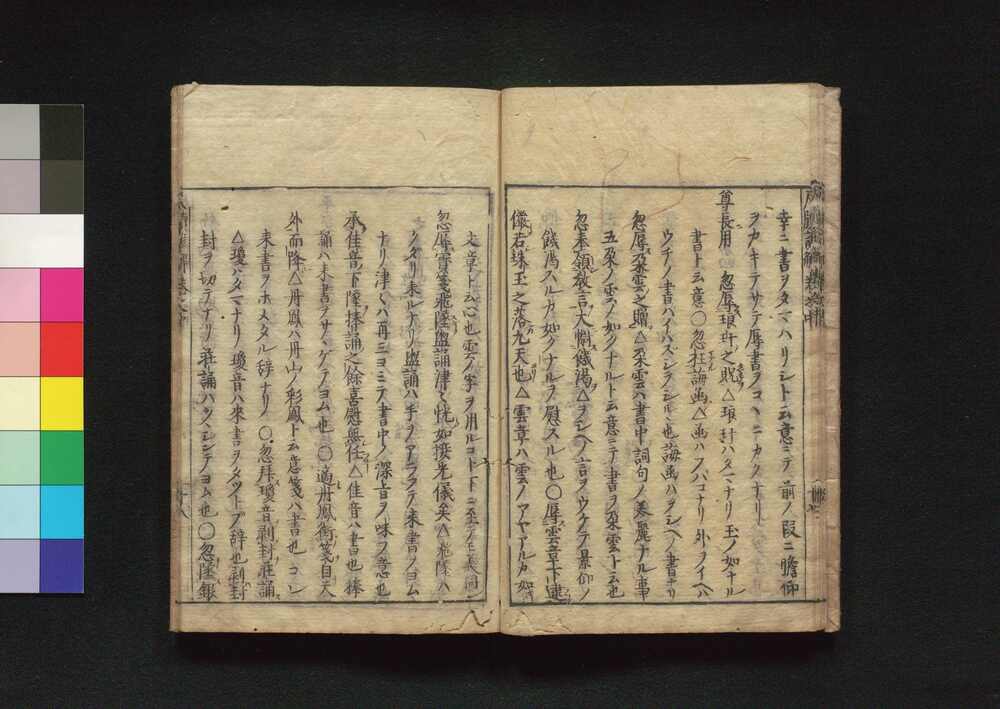 幸ニ書ヲタマハリシト云意ニテ前ノ段ニ瞻仰
ヲカキテサテ辱書ヲコヽニカクナリ
尊長用 忽辱琅玕之貺△琅玕ハタマナリ玉ノ如ナル
書ト云意〇忽枉誨凾△凾ハハコナリ外ヲイヘハ
ウチノ書ハイハスシテシル也誨凾ハヲシヘノ書ナリ
忽辱朶雲之贈△朶雲ハ書中詞句ノ美麗ナル事
五朶ノ雲ノ如クナルト云意ニテ書ヲ朶雲ト云也
忽奉領教言大慰饑渇△ヲシヘノ言ヲウケテ景仰ノ
餓渇ヘルカ如クナルヲ慰スル也〇辱雲章下逮
儼若珠玉之落九天也△雲章ハ雲ノアヤアルカ如
文章ト云心也雲ノ字ヲ用ルコト
忽辱寳箋飛墜盥誦津〻恍如接光儀矣△飛墜ハ
クタリ来ルナリ盥誦ハ手ヲアラフテ来書ヲヨム
ナリ津〻ハ再三ヨミテ書中ノ深旨ヲ味フ意也
承佳音下墜捧誦之餘喜慰無任△佳音ハ書也捧
誦ハ来書ヲサヽケテヨム也〇適丹鳳銜箋自天
外而降△丹鳳ハ丹山ノ彩鳳ト云意箋ハ書也コレ
来書ヲホメタル辞ナリ〇忽拜瓊音剥封莊誦
△瓊ハタマナリ瓊音ハ來書ヲタツトブ辞也剥封
封ヲ切テナリ莊誦ハツヽシンテヨム也〇忽墜銀